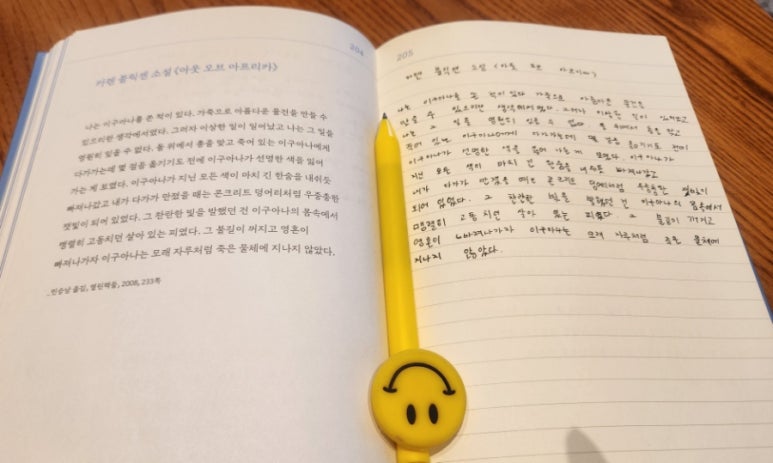 204
카렌 블릭센 소설 《아웃 오브 아프리카》
나는 이구아나를 쏜 적이 있다. 가죽으로 아름다운 물건을 만들 수
있으리란 생각에서였다. 그러자 이상한 일이 일어났고 나는 그 일을
영원히 잊을 수 없다. 돌 위에서 총을 맞고 죽어 있는 이구아나에게
다가가는데 몇 걸음 옮기기도 전에 이구아나가 선명한 색을 잃어
가는 게 보였다. 이구아나가 지닌 모든 색이 마치 긴 한숨을 내쉬듯
빠져나갔고 내가 다가가 만졌을 때는 콘크리트 덩어리처럼 우중충한
잿빛이 되어 있었다. 그 찬란한 빛을 발했던 건 이구아나의 몸속에서
맹렬히 고동치던 살아 있는 피였다. 그 불길이 꺼지고 영혼이
빠져나가자 이구아나는 모래 자루처럼 죽은 물체에 지나지 않았다.
_ 민승남 옮김, 열린책들, 2008, 233쪽
205
카렌 블릭센 소설 《아웃 오브 아프리카》
나는 이구아나를 쏜 적이 있다 가죽으로 아름다운 물건을
만들 수 있으리란 생각에서였다. 그러자 이상한 일이 일어났고
나는 그 일을 영원히 잊을 수 없다 돌 위에서 총을 맞고
죽어 있는 이구아나에게 다가가는데 몇 걸음 옮기기도 전에
이구아나가 선명한 색을 잃어 가는 게 보였다. 이구아나가
지닌 모든 색이 마치 긴 한숨을 내쉬듯 빠져나갔고
내가 다가가 만졌을 때는 콘크리트 덩어리처럼 우중충한 잿빛이
되어 있었다. 그 찬란한 빛을 발했던 건 이구아나의 몸속에서
맹렬히 고동치던 살아 있는 피였다. 그 불길이 꺼지고
영혼이 빠져나가자 이구아나는 모래 자루처럼 죽은 물체에
지나지 않았다.